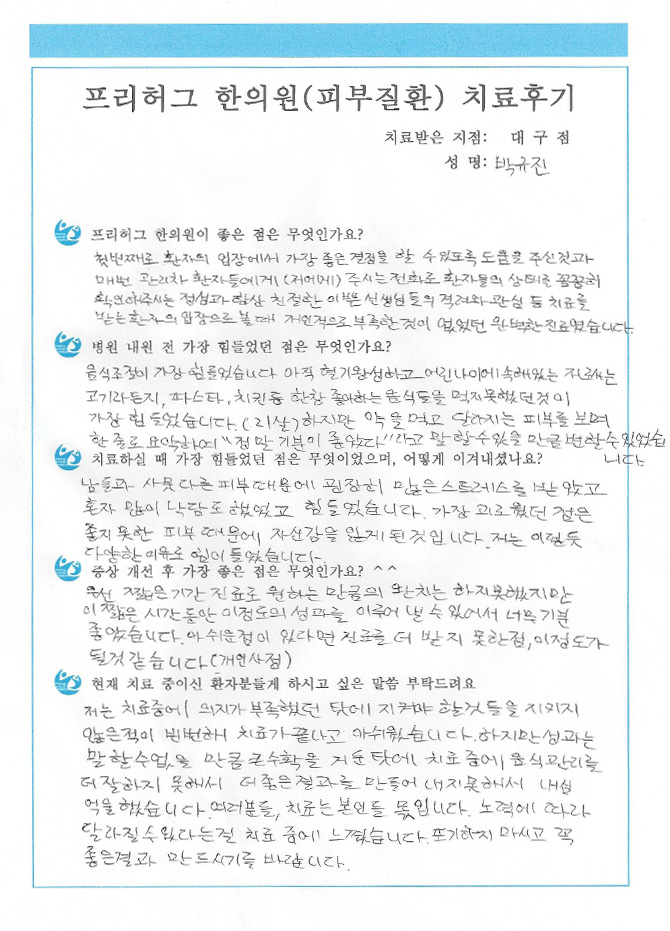 프리허그 한의원(피부질환) 치료후기
치료받은 지점: 대구점
성 명: 박규진
프리허그 한의원이 좋은 점은 무엇인가요?
첫번째로 환자의 입장에서 가장 좋은 결정을 할 수 있도록 도움을 주신것과
매번 관리차 환자들에게 (저에게) 주시는 전화로 환자들의 상태를 꼼꼼히
확인해주시는 정성과 항상 친절한 이쁜 선생님들의 격려와 관심 등 치료를
받는 환자의 입장으로 볼때 개인적으로 부족한것이 없었던 완벽한진료였습니다.
병원 내원 전 가장 힘들었던 점은 무엇인가요?
음식조절이 가장 힘들었습니다 아직 혈기왕성하고 어린나이에 속해있는 저로써는
고기라든지, 파스타, 치킨등 한창 좋아하는 음식들을 먹지못했던것이
가장 힘들었습니다. (21살) 하지만 약을 먹고 달라지는 피부를 보며
한 줄로 요약하여 "정말 기분이 좋았다" 라고 말할수있을 만큼 변할수있었습
니다.
치료하실 때 가장 힘들었던 점은 무엇이었으며, 어떻게 이겨내셨나요?
남들과 사뭇 다른 피부때문에 굉장히 많은 스트레스를 받았고
혼자 많이 낙담도 했었고 힘들었습니다. 가장 괴로웠던 점은
좋지못한 피부 때문에 자신감을 잃게된것입니다. 저는 이렇듯
다양한 이유로 힘이 들었습니다.
증상 개선 후 가장 좋은 점은 무엇인가요? ^^
우선 짧은기간 진료로 원하는 만큼의 완치는 하지못했지만
이 짧은 시간동안 이정도의 성과를 이루어 낼 수 있어서 너무 기분
좋았습니다. 아쉬운점이 있다면 진료를 더 받지 못한점, 이정도가
될것 같습니다 (개인사정)
현재 치료 중이신 환자분들게 하시고 싶은 말씀 부탁드려요
저는 치료중에 의지가 부족했던 탓에 지켜야 할것들을 지키지
않은적이 빈번하여 치료가 끝나고 아쉬웠습니다. 하지만 성과는
말할수없을 만큼 큰수확을 거둔 탓에 치료 중에 음식관리를
더 잘하지 못해서 더 좋은결과를 만들어 내지못해서 내심
억울했습니다. 여러분들, 치료는 본인들 몫입니다. 노력에 따라
달라질수있다는걸 치료 중에 느꼈습니다. 포기하지 마시고 꼭
좋은결과 만드시기를 바랍니다.